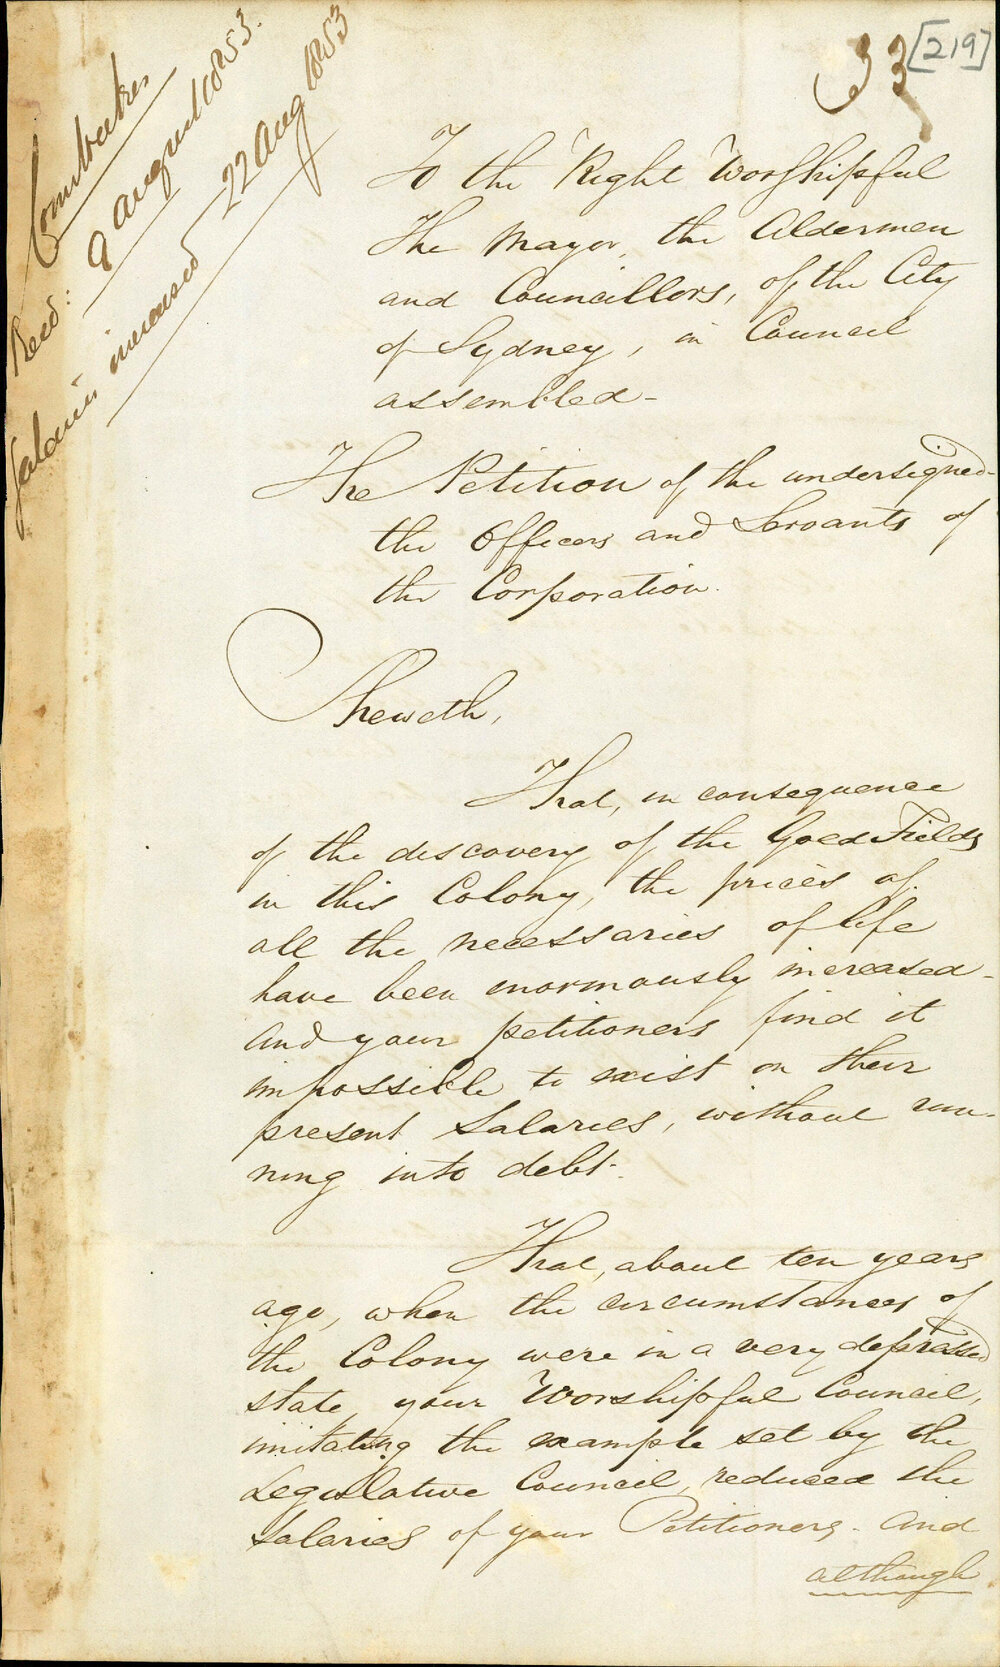 33
[219]
Recd: 9 August 1853.
Salaries increased 22 Aug 1853
To the Right Worshipful
The Mayor, the Aldermen
and Councillors, of the City
of Sydney, in Council
assembled-
The Petition of the undersigned-
the Officers and Servants of
the Corporation.
Sheweth,
That, in consequence
of the discovery of the Gold Fields
in this Colony, the prices of
all the necessaries of life
have been enormously increased-
And your petitioners find it
impossible to exist on their
present Salaries, without run-
ning into debt.
That, about ten years
ago, when the circumstances of
the Colony were in a very depressed
state, your Worshipful Council,
imitating the example set by the
Legislative Council, reduced the
Salaries of your Petitioners. And
although